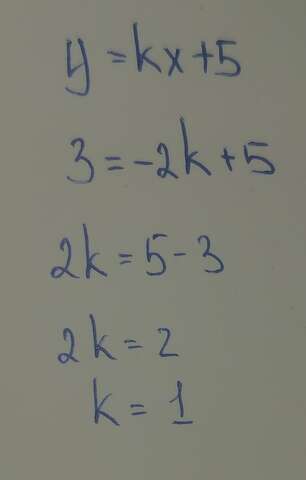 y = kx + 5
3 = -2k + 5
2k = 5 - 3
2k = 2
k = 1